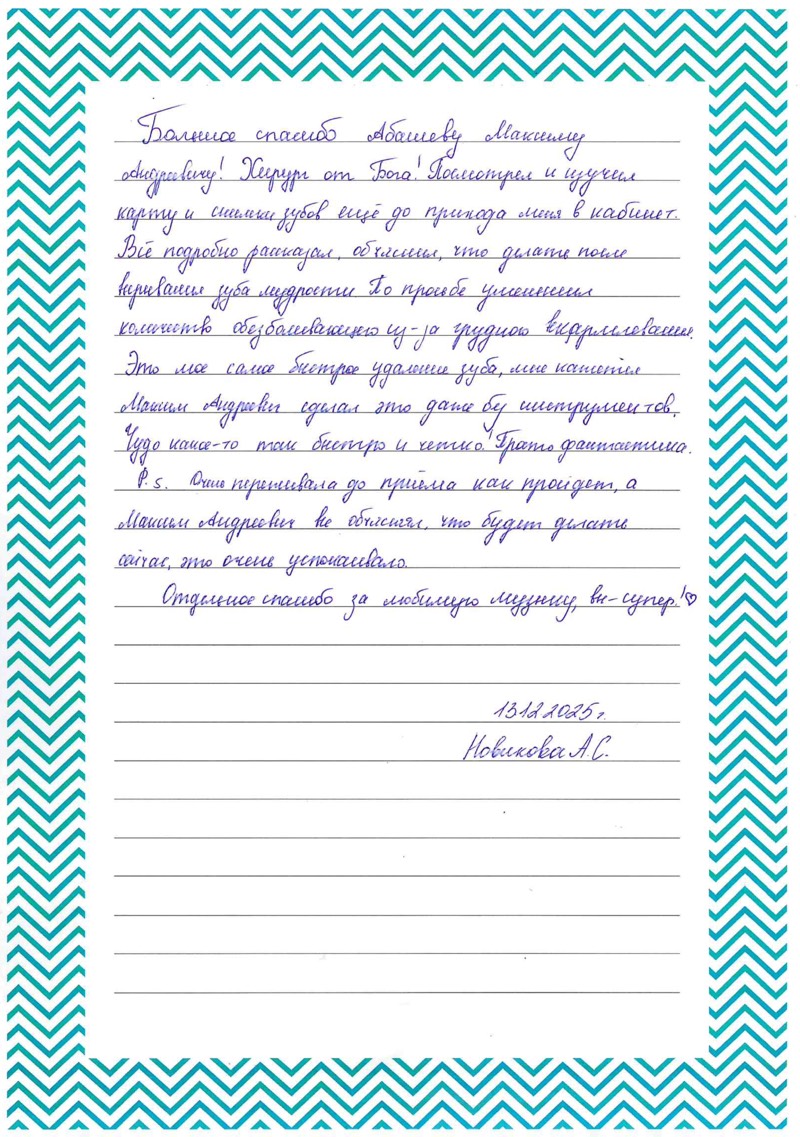 Большое спасибо Абашеву Максиму
Андреевичу! Хирург от Бога! Посмотрел и изучил
карту и снимки зубов ещё до прихода меня в кабинет.
Всё подробно рассказал, объяснил, что делать после
вырывания зуба мудрости. По просьбе уменьшил
количество обезболивающего из-за грудного вскармливания.
Это мое самое быстрое удаление зуба, мне кажется
Максим Андреевич сделал это даже без инструментов.
Чудо какое-то так быстро и четко! Просто фантастика.
P.s. Очень переживала до приёма как пройдет, а
Максим Андреевич все объяснял, что будет делать
сейчас, это очень успокаивало.
Отдельное спасибо за любимую музыку, вы-супер!♡
13.12.2025г.
Новикова А.С.